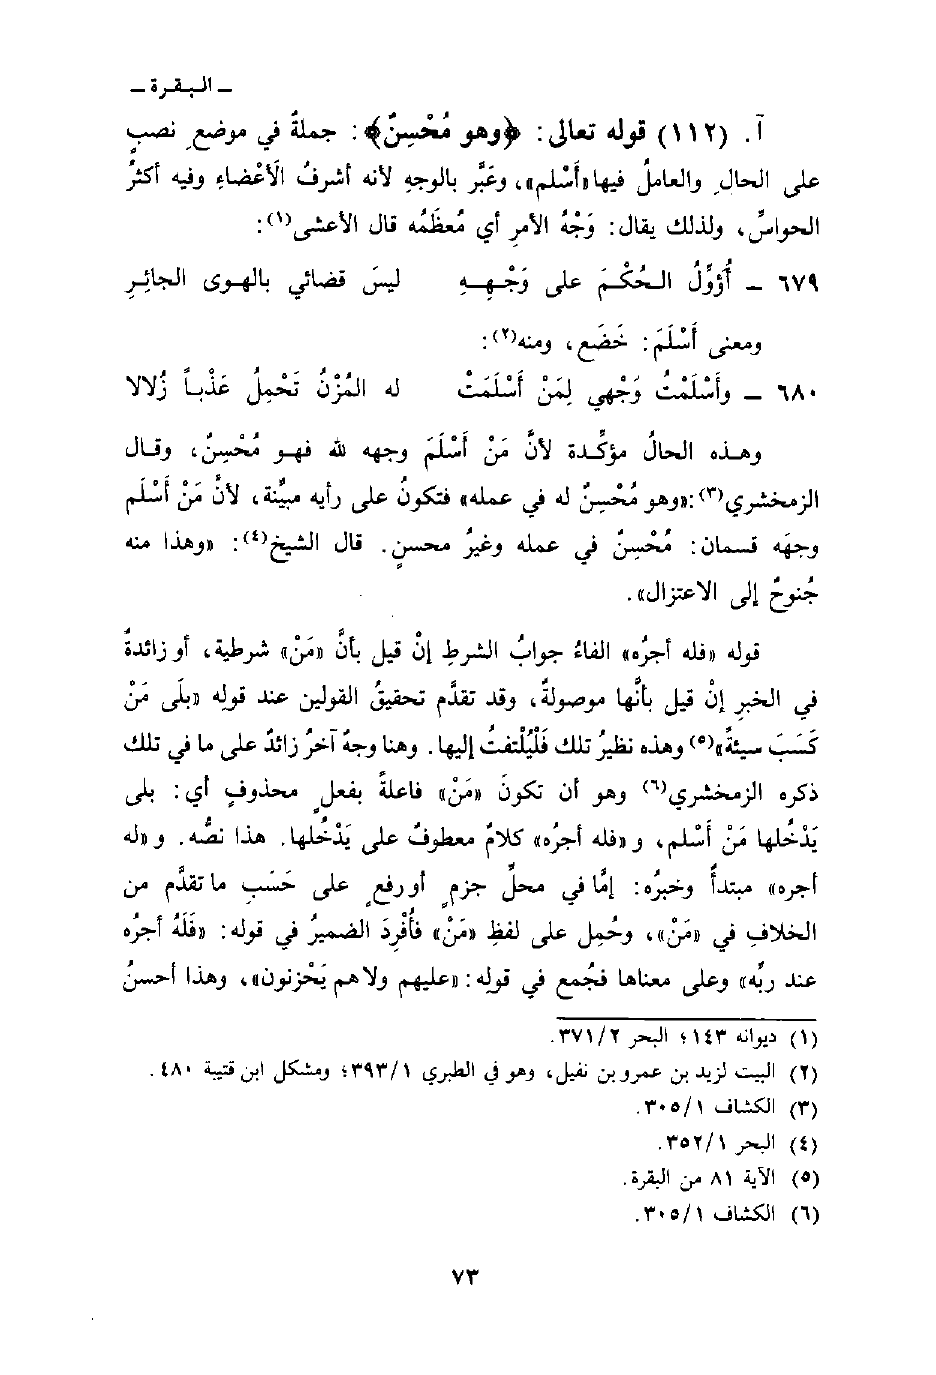 ـ البقرة ـ
آ. (١١٢) قوله تعالى: ﴿وهو مُحْسِنٌ﴾: جملةٌ في موضعِ نصبٍ
على الحالِ والعاملُ فيها «أَسْلم»، وعَبَّر بالوجهِ لأنه أشرفُ الأَعْضاءِ وفيه أكثرُ
الحواسِّ، ولذلك يقال: وَجْهُ الأمرِ أي مُعظَمُه قال الأعشى(١):
٦٧٩ ـ أُؤَوِّلُ الحُكْمَ على وَجْهِهِ ليسَ قضائي بالهوى الجائِرِ
ومعنى أَسْلَمَ: خَضَع، ومنه(٢):
٦٨٠ ـ وأَسْلَمْتُ وَجْهي لِمَنْ أَسْلَمَتْ له المُزْنُ تَحْمِلُ عَذْباً زُلالا
وهذه الحالُ مؤكِّدة لأنَّ مَنْ أَسْلَمَ وجهه لله فهو مُحْسِنٌ، وقال
الزمخشري(٣): «وهو مُحْسِنٌ له في عمله» فتكونُ على رأيه مبيِّنة، لأنَّ مَنْ أَسْلم
وجهَه قسمان: مُحْسِنٌ في عمله وغيرُ محسنٍ. قال الشيخ(٤): «وهذا منه
جُنوحٌ إلى الاعتزال».
قوله «فله أجرُه» الفاءُ جوابُ الشرطِ إنْ قيل بأنَّ «مَنْ» شرطية، أو زائدةٌ
في الخبرِ إنْ قيل بأنَّها موصولةٌ، وقد تقدَّم تحقيقُ القولين عند قولِه «بلَى مَنْ
كَسَبَ سيئةً»(٥) وهذه نظيرُ تلك فَلْيُلْتفتْ إليها. وهنا وجهٌ آخرُ زائدٌ على ما في تلك
ذكره الزمخشري(٦) وهو أن تكونَ «مَنْ» فاعلةً بفعلٍ محذوفٍ أي: بلى
يَدْخُلها مَنْ أَسْلم، و «فله أجرُه» كلامٌ معطوفٌ على يَدْخُلها. هذا نصُّه. و «له
أجره» مبتدأٌ وخبرُه: إمَّا في محلِّ جزمٍ أو رفعٍ على حَسَبِ ما تقدَّم من
الخلافِ في «مَنْ»، وحُمِل على لفظِ «مَنْ» فأُفْرِدَ الضميرُ في قوله: «فَلَهُ أجرُه
عند ربِّه» وعلى معناها فجُمع في قوله: «عليهم ولا هم يَحْزنون»، وهذا أحسنُ
(١) ديوانه ١٤٣؛ البحر ٣٧١/٢.
(٢) البيت لزيد بن عمرو بن نفيل، وهو في الطبري ٣٩٣/١؛ ومشكل ابن قتيبة ٤٨٠.
(٣) الكشاف ٣٠٥/١.
(٤) البحر ٣٥٢/١.
(٥) الآية ٨١ من البقرة.
(٦) الكشاف ٣٠٥/١.
٧٣